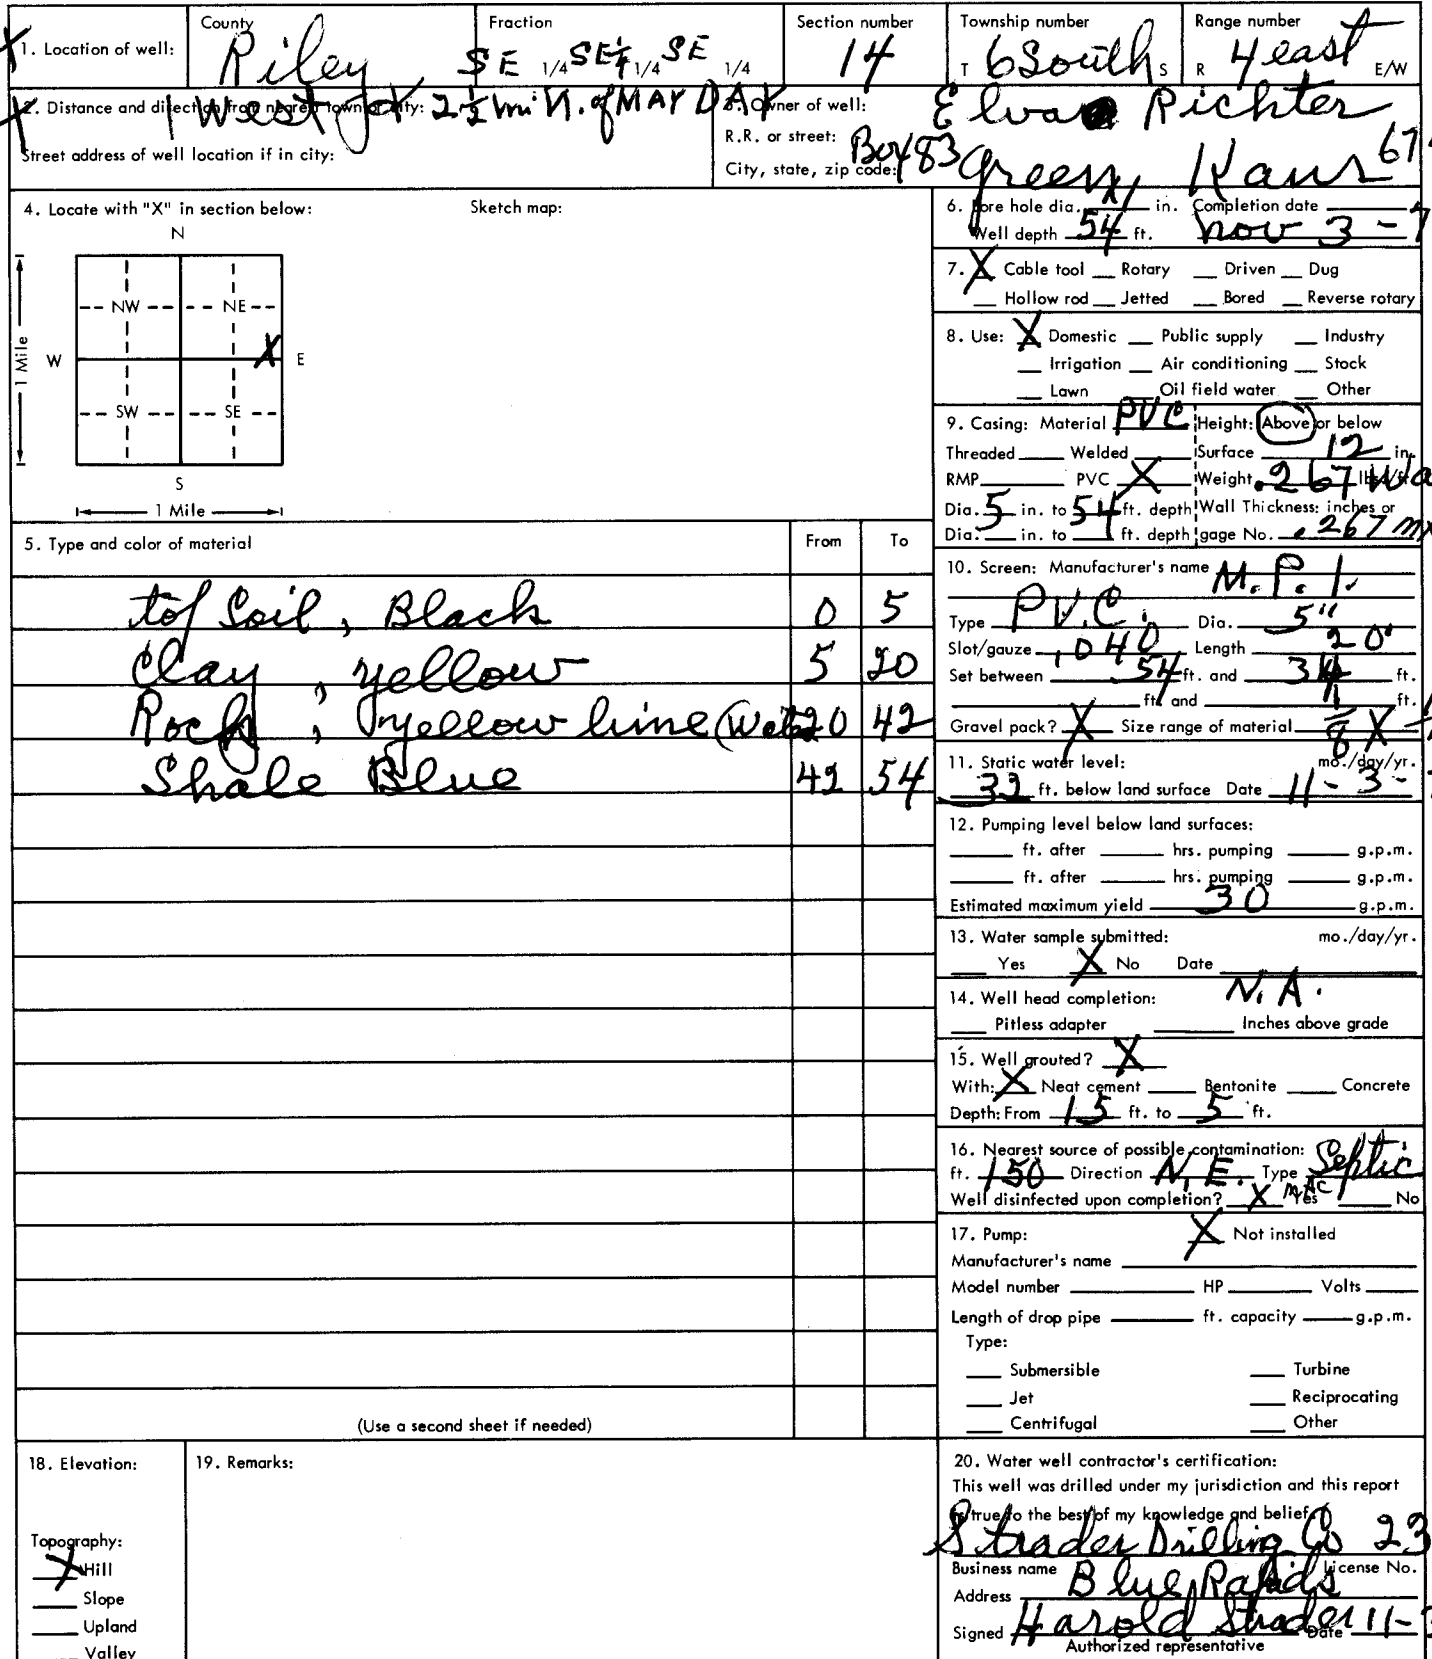 County Fraction Section number Township number Range number
X 1. Location of well: Riley, SE 1/4 SE 1/4 SE 1/4 14 T 6 South S R 4 east E/W
X 2. Distance and direction from nearest town or city: 1 West of 2½ mi N. of MAY DAY
Street address of well location if in city:
3. Owner of well: Elva Richter
R.R. or street: Box 83
City, state, zip code: Green, Kans 67
4. Locate with "X" in section below: Sketch map:
N
NW NE
W X E
SW SE
S
1 Mile
1 Mile
5. Type and color of material From To
top Soil, Black 0 5
Clay, yellow 5 20
Rock, yellow lime (Water 20 42
Shale Blue 42 54
(Use a second sheet if needed)
6. Bore hole dia. in. Completion date
Well depth 54 ft. nov 3 -7
7. X Cable tool Rotary Driven Dug
Hollow rod Jetted Bored Reverse rotary
8. Use: X Domestic Public supply Industry
Irrigation Air conditioning Stock
Lawn Oil field water Other
9. Casing: Material PVC Height: Above or below
Threaded Welded Surface 12 in.
RMP PVC X Weight .267 Wa lbs./ft.
Dia. 5 in. to 54 ft. depth Wall Thickness: inches or
Dia. in. to ft. depth gage No. .267
10. Screen: Manufacturer's name M.P.I.
Type P.V.C. Dia. 5"
Slot/gauze .040 Length 20'
Set between 54 ft. and 34 ft.
ft. and ft.
Gravel pack? X Size range of material 8 X
11. Static water level: mo./day/yr.
33 ft. below land surface Date 11-3-7
12. Pumping level below land surfaces:
ft. after hrs. pumping g.p.m.
ft. after hrs. pumping g.p.m.
Estimated maximum yield 30 g.p.m.
13. Water sample submitted: mo./day/yr.
Yes X No Date
14. Well head completion: N.A.
Pitless adapter Inches above grade
15. Well grouted? X
With: X Neat cement Bentonite Concrete
Depth: From 15 ft. to 5 ft.
16. Nearest source of possible contamination:
ft. 150 Direction N.E. Type Septic
Well disinfected upon completion? X Yes No
17. Pump: X Not installed
Manufacturer's name
Model number HP Volts
Length of drop pipe ft. capacity g.p.m.
Type:
Submersible Turbine
Jet Reciprocating
Centrifugal Other
18. Elevation:
Topography:
X Hill
Slope
Upland
Valley
19. Remarks:
20. Water well contractor's certification:
This well was drilled under my jurisdiction and this report
is true to the best of my knowledge and belief.
Strader Drilling Co 23
Business name License No.
Address Blue Rapids
Signed Harold Strader Date 11-3
Authorized representative